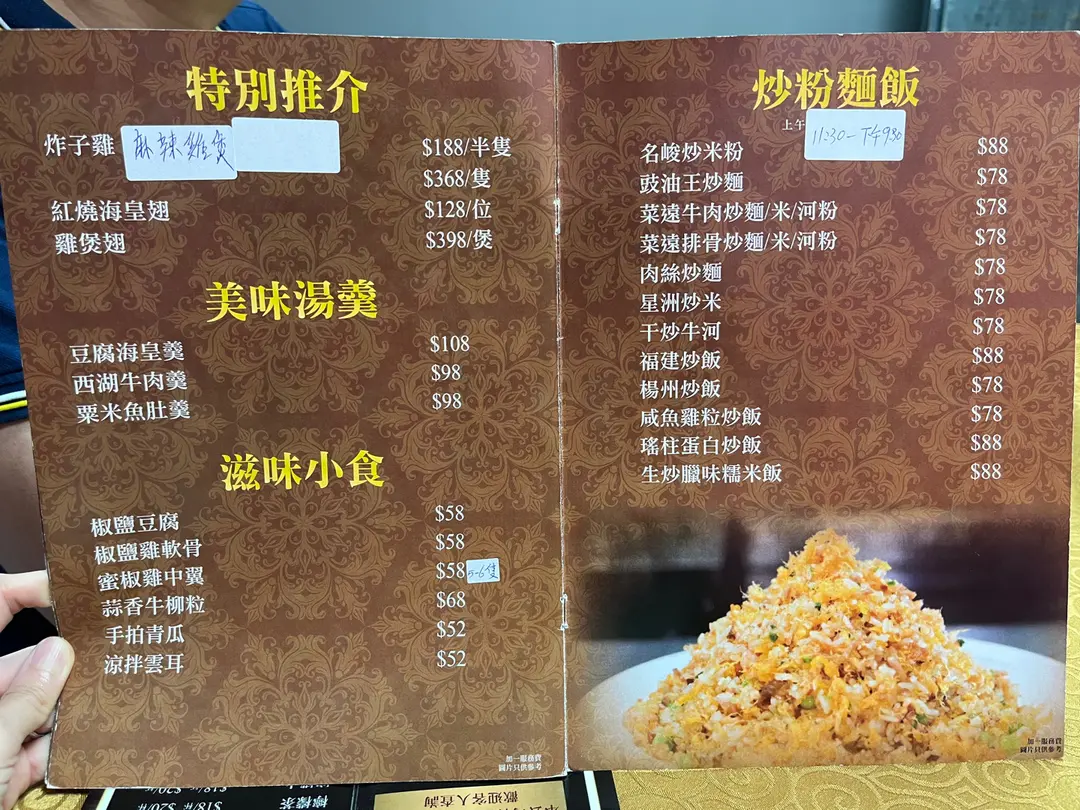 特別推介
炸子雞 麻辣雞煲 $188/半隻
$368/隻
紅燒海皇翅 $128/位
雞煲翅 $398/煲
美味湯羹
豆腐海皇羹 $108
西湖牛肉羹 $98
粟米魚肚羹 $98
滋味小食
椒鹽豆腐 $58
椒鹽雞軟骨 $58
蜜椒雞中翼 $58 5-6隻
蒜香牛柳粒 $68
手拍青瓜 $52
涼拌雲耳 $52
加一服務費
圖片只供參考
炒粉麵飯
上午 11:30-下午9:30
名峻炒米粉 $88
豉油王炒麵 $78
菜遠牛肉炒麵/米/河粉 $78
菜遠排骨炒麵/米/河粉 $78
肉絲炒麵 $78
星洲炒米 $78
干炒牛河 $78
福建炒飯 $88
楊州炒飯 $78
咸魚雞粒炒飯 $78
瑤柱蛋白炒飯 $88
生炒臘味糯米飯 $88
加一服務費
圖片只供參考
檸檬茶 $18/杯 $20/杯
歡迎客人查詢